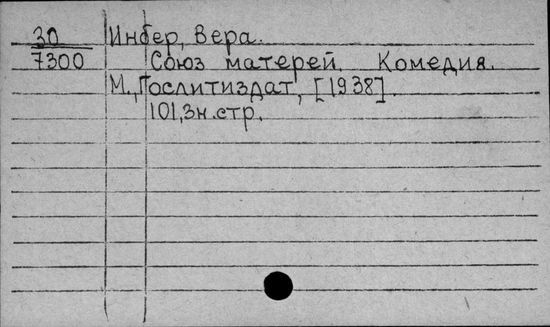 30 Инбер, Вера.
7300 Союз матерей. Комедия.
М., Гослитиздат, [1938].
101,3н.стр.